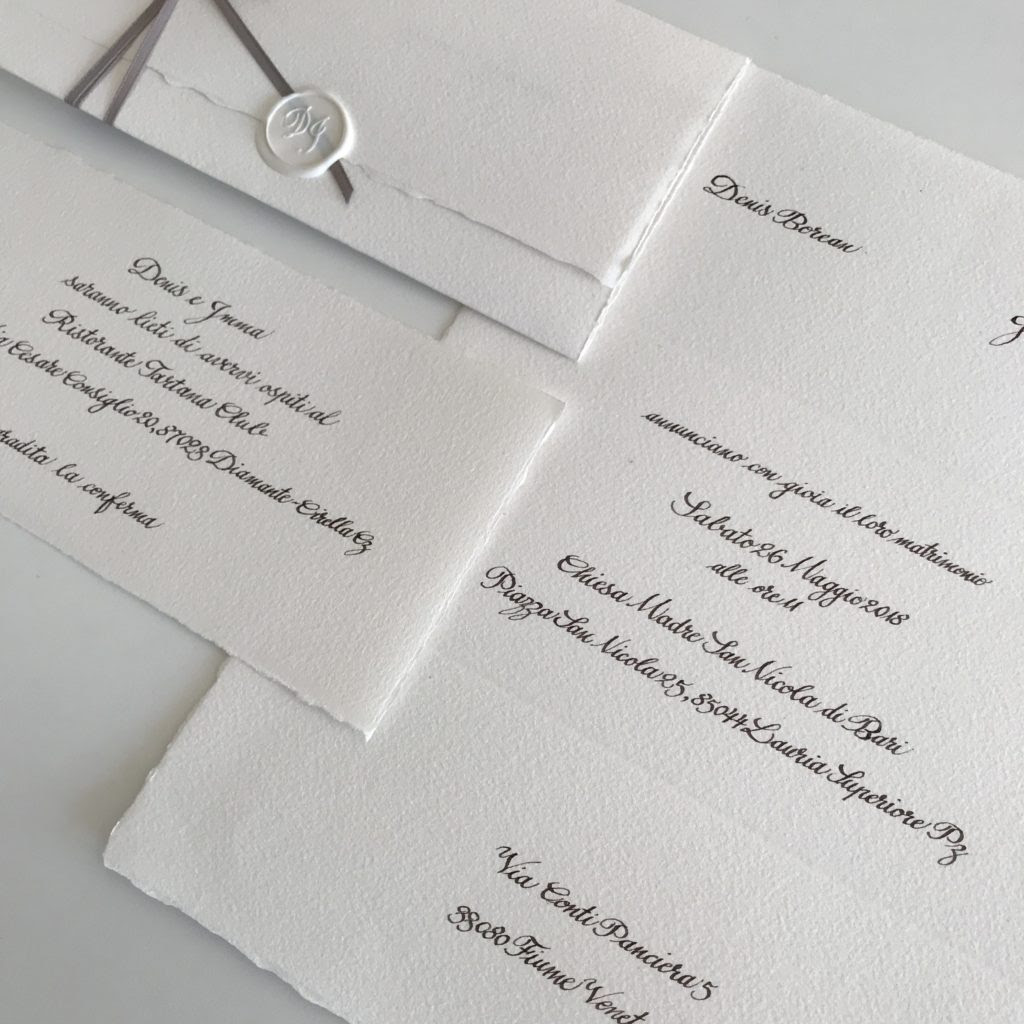 DJ
Denis e Imma
saranno lieti di avervi ospiti al
Ristorante Tartana Club
Cesare Consiglio 20, 87023 Diamante-Cirella Cz
la conferma
Denis Borean
annunciano con gioia il loro matrimonio
Sabato 26 Maggio 2018
alle ore 11
Chiesa Madre San Nicola di Bari
Piazza San Nicola 25, 85044 Lauria Superiore Pz
Via Conti Panciera 5
33080 Fiume Venet